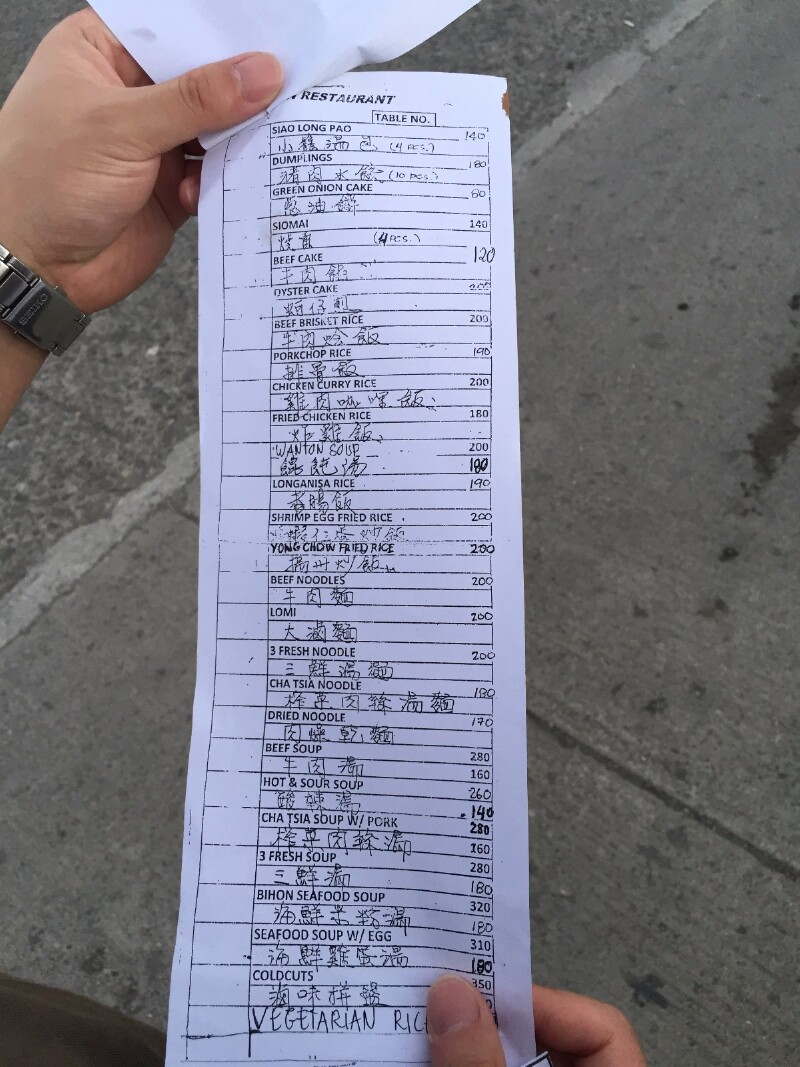 RESTAURANT
TABLE NO.
SIAO LONG PAO 140
小籠湯包 (4 PCS.)
DUMPLINGS 180
豬肉水餃 (10 PCS.)
GREEN ONION CAKE 80
蔥油餅
SIOMAI 140
燒賣 (4 PCS.)
BEEF CAKE 120
牛肉餡
OYSTER CAKE 200
蚵仔煎
BEEF BRISKET RICE 200
牛肉燴飯
PORKCHOP RICE 190
排骨飯
CHICKEN CURRY RICE 200
雞肉咖哩飯
FRIED CHICKEN RICE 180
炸雞飯
WANTON SOUP 200
餛飩湯 180
LONGANISA RICE 190
香腸飯
SHRIMP EGG FRIED RICE 200
蝦仁蛋炒飯
YONG CHOW FRIED RICE 200
揚州炒飯
BEEF NOODLES 200
牛肉麵
LOMI 200
大滷麵
3 FRESH NOODLE 200
三鮮湯麵
CHA TSIA NOODLE 180
榨菜肉絲湯麵
DRIED NOODLE 170
肉燥乾麵
BEEF SOUP 280
牛肉湯 160
HOT & SOUR SOUP 260
酸辣湯 140
CHA TSIA SOUP W/ PORK 280
榨菜肉絲湯 160
3 FRESH SOUP 280
三鮮湯 180
BIHON SEAFOOD SOUP 320
海鮮米粉湯 180
SEAFOOD SOUP W/ EGG 310
海鮮雞蛋湯 180
COLDCUTS 350
滷味拼盤
VEGETARIAN RICE
SEIKO